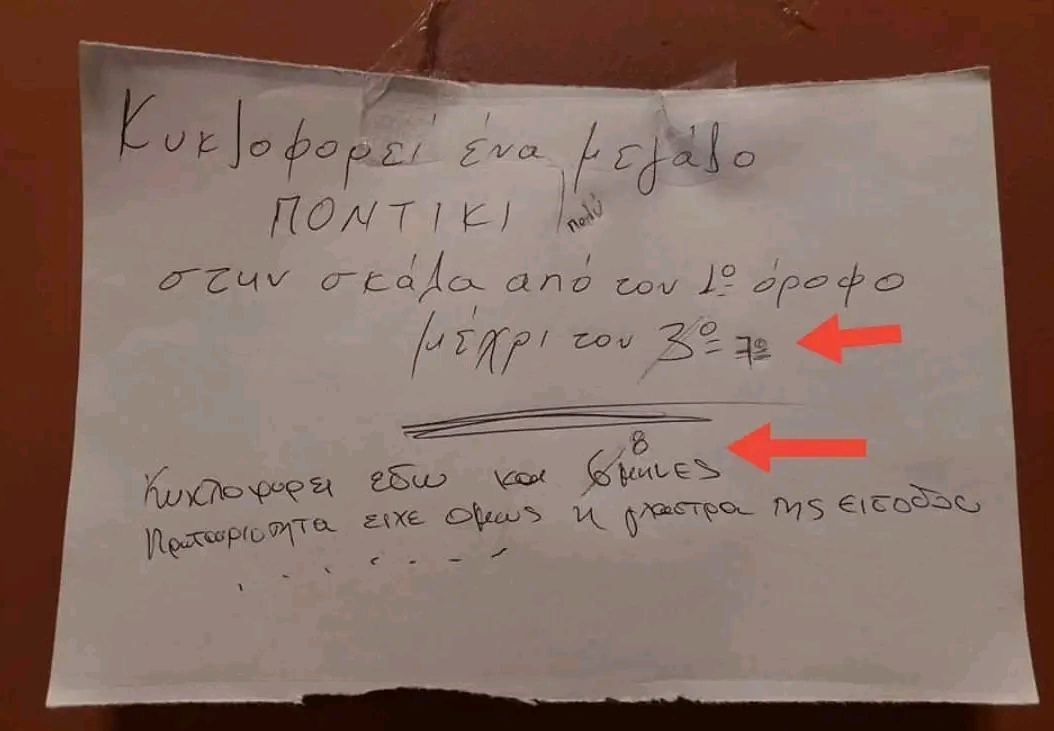 Κυκλοφορεί ένα μεγάλο
πολύ
ΠΟΝΤΙΚΙ
στην σκάλα από τον 1º όροφο
μέχρι τον 3º 7º
8
Κυκλοφορει εδω και 6 μηνες
Προτεραιοτητα ειχε ομως η γλαστρα της εισοδου
. . . . . . .